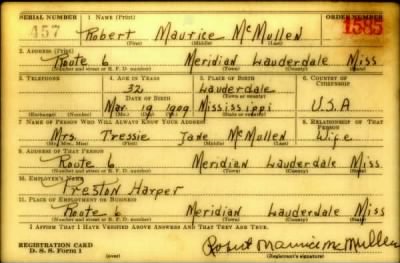 SERIAL NUMBER 1 NAME (Print) ORDER NUMBER
457 Robert Maurice McMullen 1585
(First) (Middle) (Last)
2. ADDRESS (Print)
Route 6 Meridian Lauderdale Miss
(Number and street or R. F. D. number) (Town) (County) (State)
3. TELEPHONE 4. AGE IN YEARS 5. PLACE OF BIRTH 6. COUNTRY OF CITIZENSHIP
32 Lauderdale
DATE OF BIRTH (Town or county)
Mar 19 1909 Mississippi U.S.A
(Exchange) (Number) (Mo.) (Day) (Yr.) (State or country)
7. NAME OF PERSON WHO WILL ALWAYS KNOW YOUR ADDRESS 8. RELATIONSHIP OF THAT PERSON
Mrs. Tressie Jane McMullen Wife
(Mr., Mrs., Miss) (First) (Middle) (Last)
9. ADDRESS OF THAT PERSON
Route 6 Meridian Lauderdale Miss
(Number and street or R. F. D. number) (Town) (County) (State)
10. EMPLOYER'S NAME
Preston Harper
11. PLACE OF EMPLOYMENT OR BUSINESS
Route 6 Meridian Lauderdale Miss
(Number and street or R. F. D. number) (Town) (County) (State)
I AFFIRM THAT I HAVE VERIFIED ABOVE ANSWERS AND THAT THEY ARE TRUE.
REGISTRATION CARD Robert Maurice McMullen
D. S. S. Form 1 (over) (Registrant's signature)